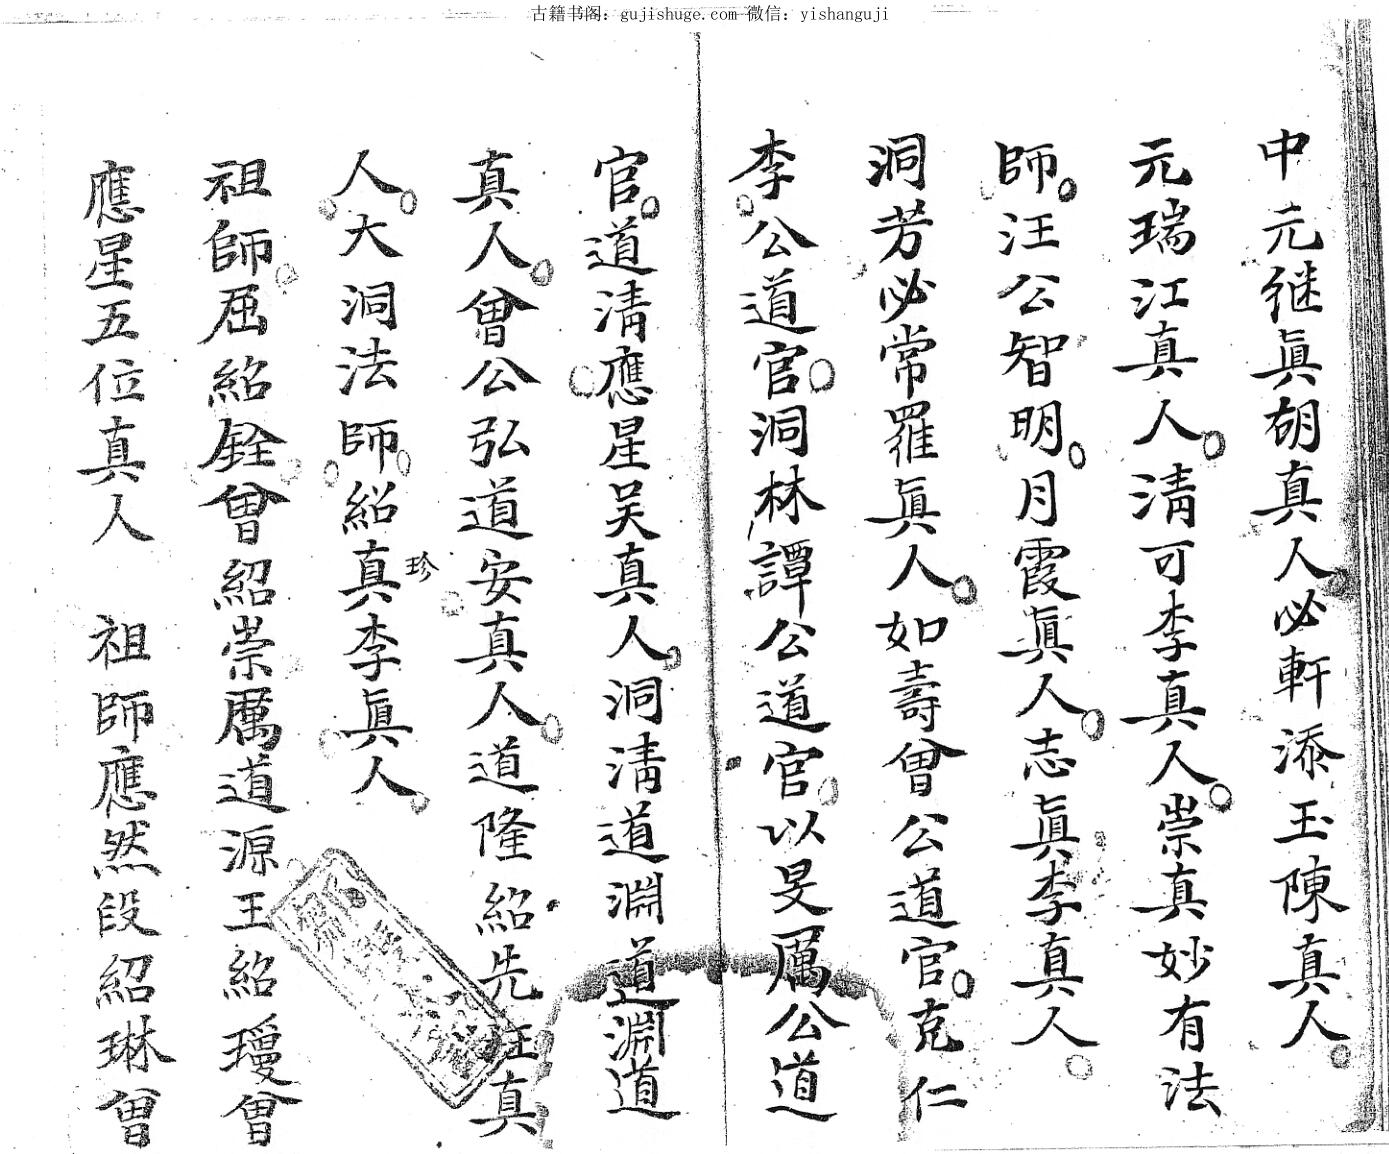 古籍书阁：gujishuge.com 微信：yishanguji
中元继眞胡真人必軒添玉陳真人
元瑞江真人清可李真人崇真妙有法
師汪公智明月霞眞人志眞李真人
洞芳必常羅眞人如壽曾公道官克仁
李公道官洞林譚公道官以旻厲公道
官道清應星吴真人洞清道淵道淵道
真人曾公弘道安真人道隆紹先汪真
人大洞法師紹真李眞人
珍
祖師屈紹銓曾紹崇厲道源王紹瓊曾
應星五位真人 祖師應然段紹琳曾